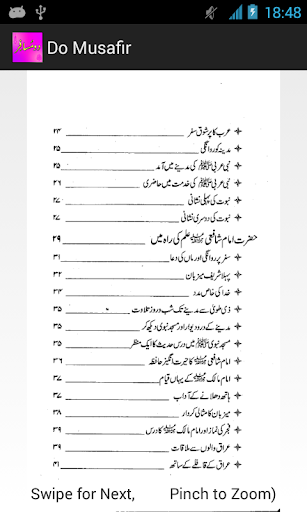 18:48
دو مسافر
Do Musafir
عرب کا پر شوق سفر ۲۴
مدینہ کو روانگی ۲۵
نبی عربی ﷺ کی مدینے میں آمد ۲۵
نبی عربی ﷺ کی خدمت میں حاضری ۲۶
نبوت کی پہلی نشانی ۲۷
نبوت کی دوسری نشانی ۲۷
حضرت امام شافعی علم کی راہ میں ۲۹
سفر پر روانگی اور ماں کی دعا ۳۱
پہلا شریف میزبان ۳۲
خدا کی خاص مدد ۳۴
ذی طویٰ سے مدینے تک شب و روز تلاوت ۳۵
مدینے کے در و دیوار اور مسجد نبوی دیکھ کر ۳۵
مسجد نبوی ﷺ میں درس حدیث کا ایک منظر ۳۵
امام شافعی کا حیرت انگیز حافظہ ۳۶
امام مالک کے یہاں قیام ۳۷
ہاتھ دھلانے کے آداب ۳۷
میزبان کا مثالی کردار ۳۸
فجر کی نماز اور امام مالک کا درس ۳۹
عراق والوں سے ملاقات ۳۹
عراق کے قافلے کے ساتھ ۴۱
Swipe for Next, Pinch to Zoom)